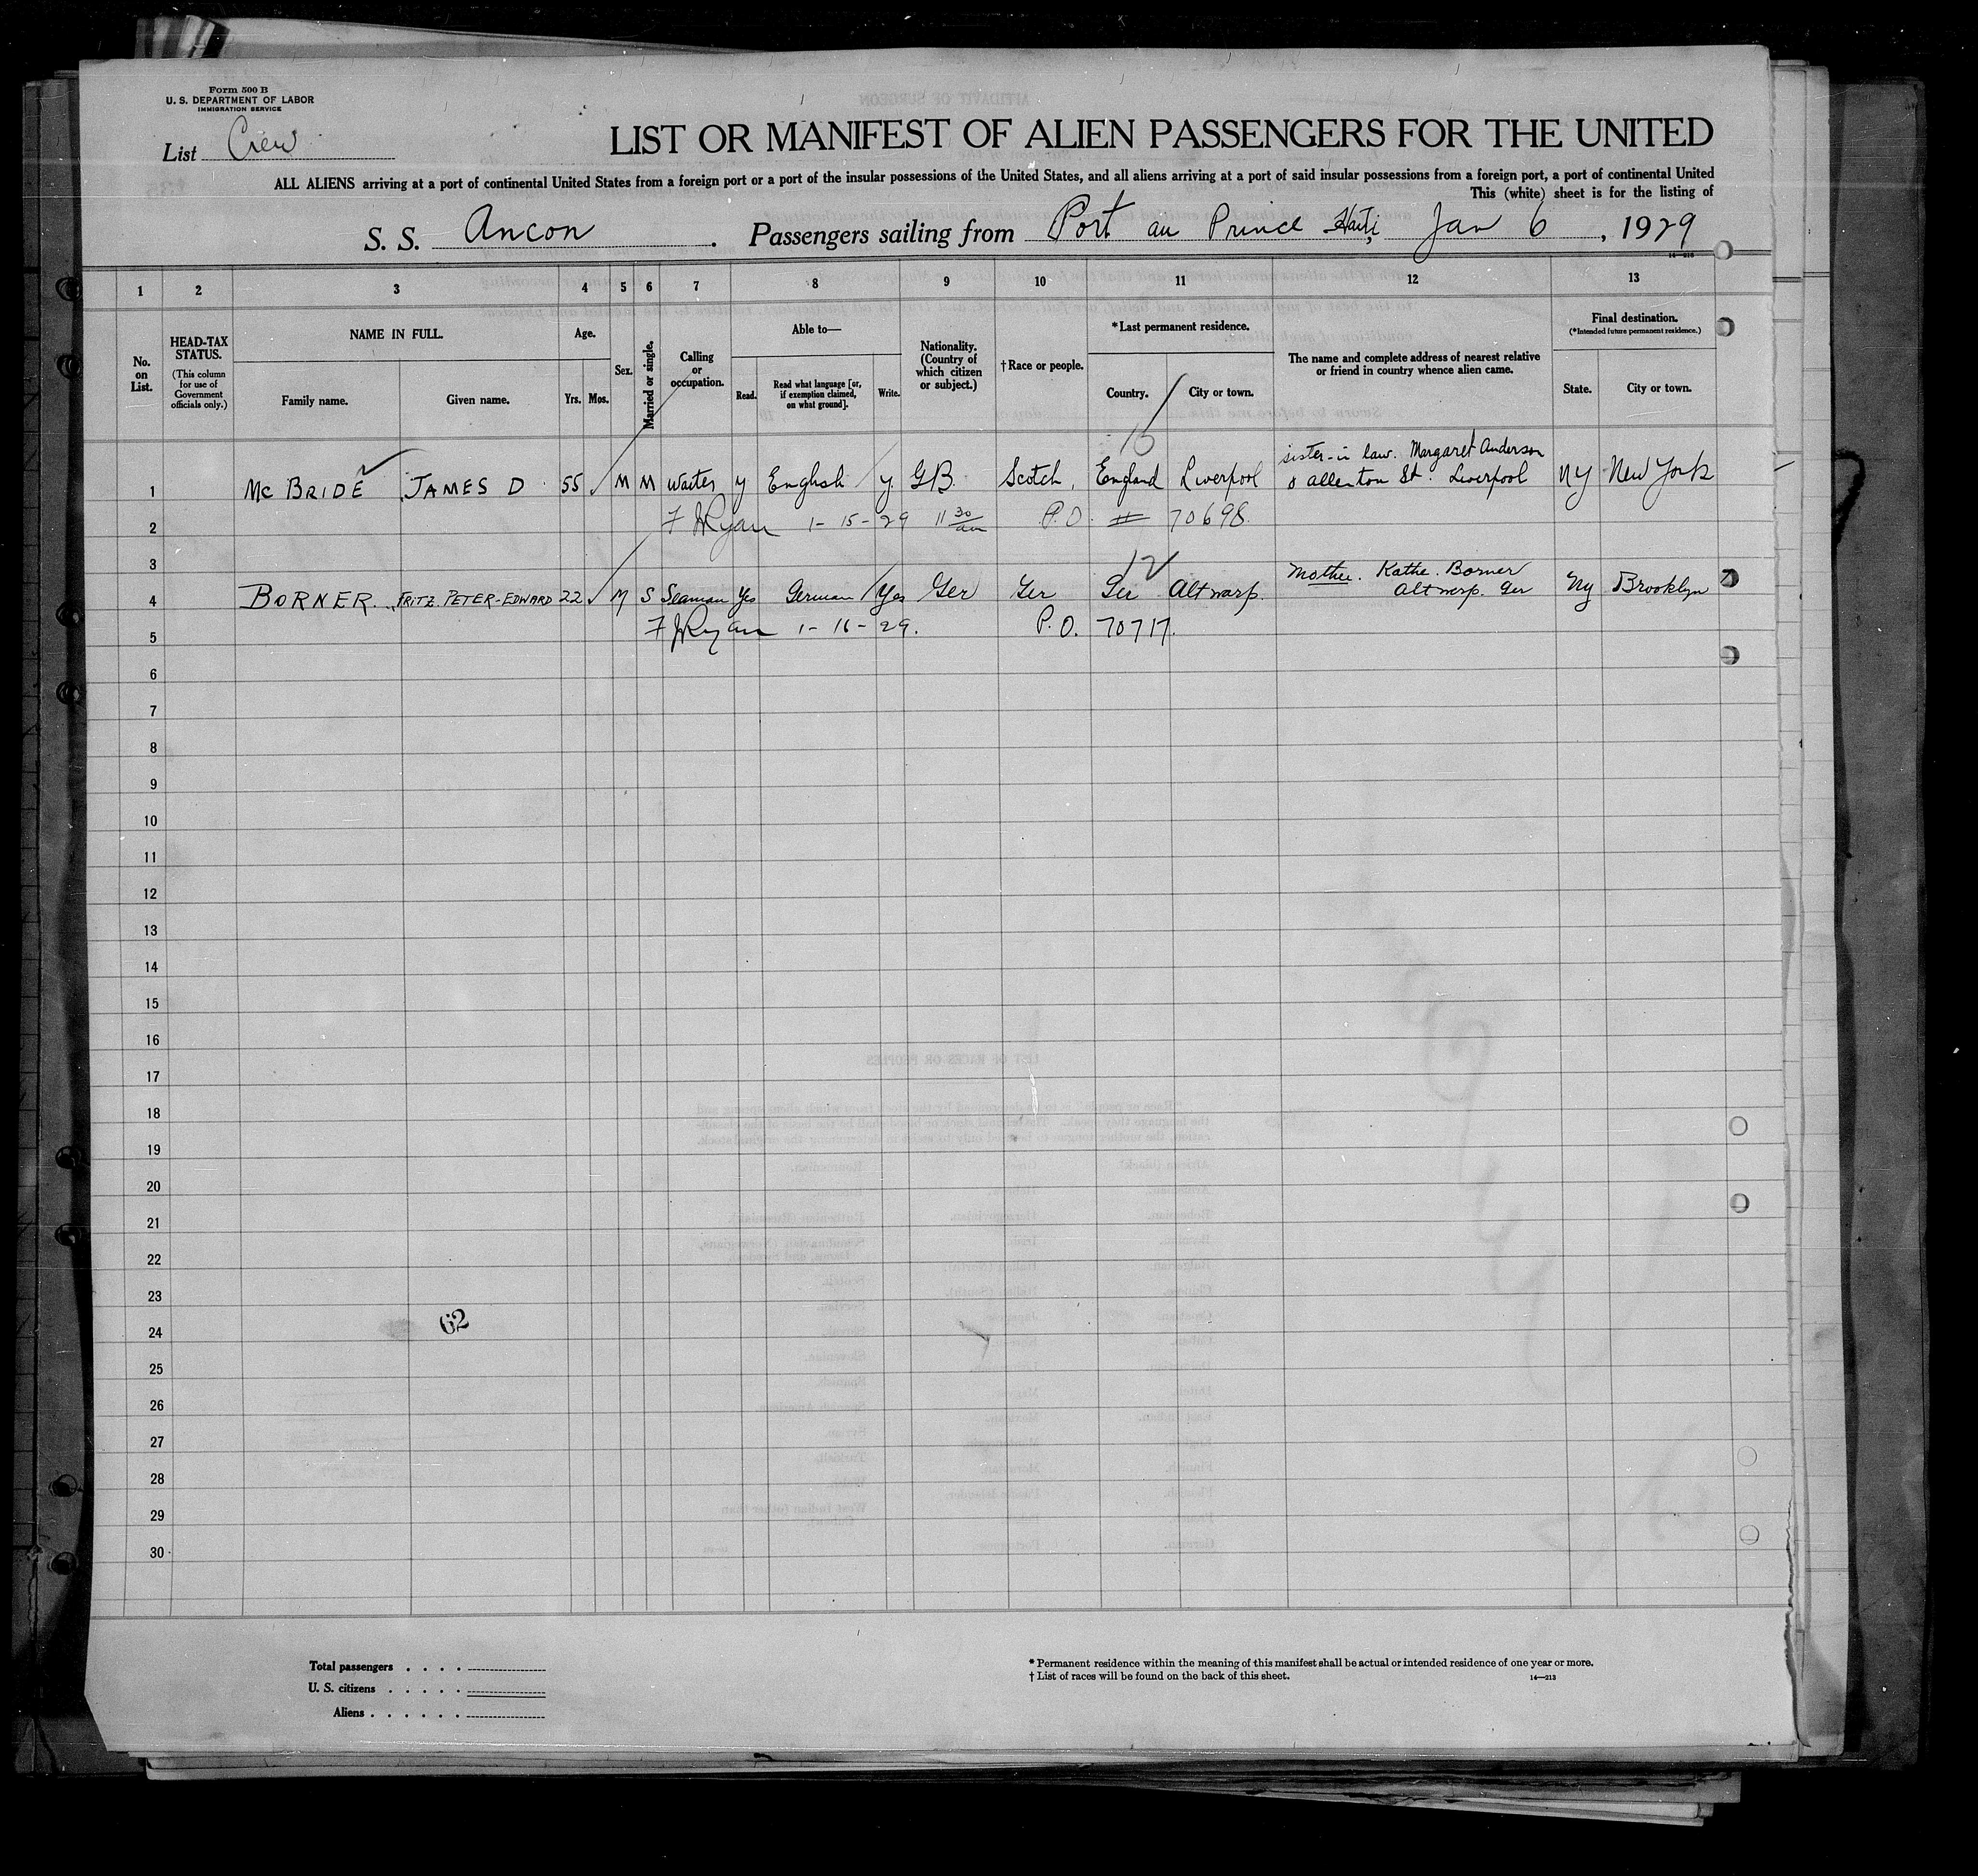 Form 500 B
U. S. DEPARTMENT OF LABOR
IMMIGRATION SERVICE
List Crew
LIST OR MANIFEST OF ALIEN PASSENGERS FOR THE UNITED
ALL ALIENS arriving at a port of continental United States from a foreign port or a port of the insular possessions of the United States, and all aliens arriving at a port of said insular possessions from a foreign port, a port of continental United
This (white) sheet is for the listing of
S. S. Ancon . Passengers sailing from Port au Prince Haiti, Jan 6 , 1929
1 2 3 4 5 6 7 8 9 10 11 12 13
No. on List.
HEAD-TAX STATUS. (This column for use of Government officials only.)
NAME IN FULL.
Family name. Given name.
Age.
Yrs. Mos.
Sex.
Married or single.
Calling or occupation.
Able to—
Read. Read what language [or, if exemption claimed, on what ground]. Write.
Nationality. (Country of which citizen or subject.)
†Race or people.
*Last permanent residence.
Country. City or town.
The name and complete address of nearest relative or friend in country whence alien came.
Final destination.
(*Intended future permanent residence.)
State. City or town.
10
1 Mc BRIDE JAMES D 55 M M Waiter y English y GB. Scotch England Liverpool sister-in law. Margaret Anderson 8 allerton St. Liverpool NY New York
2 F J Ryan 1-15-29 11 30 am P.O. # 70698.
3
12
4 BORNER. FRITZ PETER-EDWARD 22 M S Seaman Yes German Yes Ger Ger Ger Altwarp. Mother. Kathe. Borner Altwarp. Ger Ny Brooklyn
5 F J Ryan 1-16-29. P.O. 70717.
6
7
8
9
10
11
12
13
14
15
16
17
18
19
20
21
22
23
62
24
25
26
27
28
29
30
Total passengers . . . .
U. S. citizens . . . . .
Aliens . . . . . .
* Permanent residence within the meaning of this manifest shall be actual or intended residence of one year or more.
† List of races will be found on the back of this sheet.
14—213